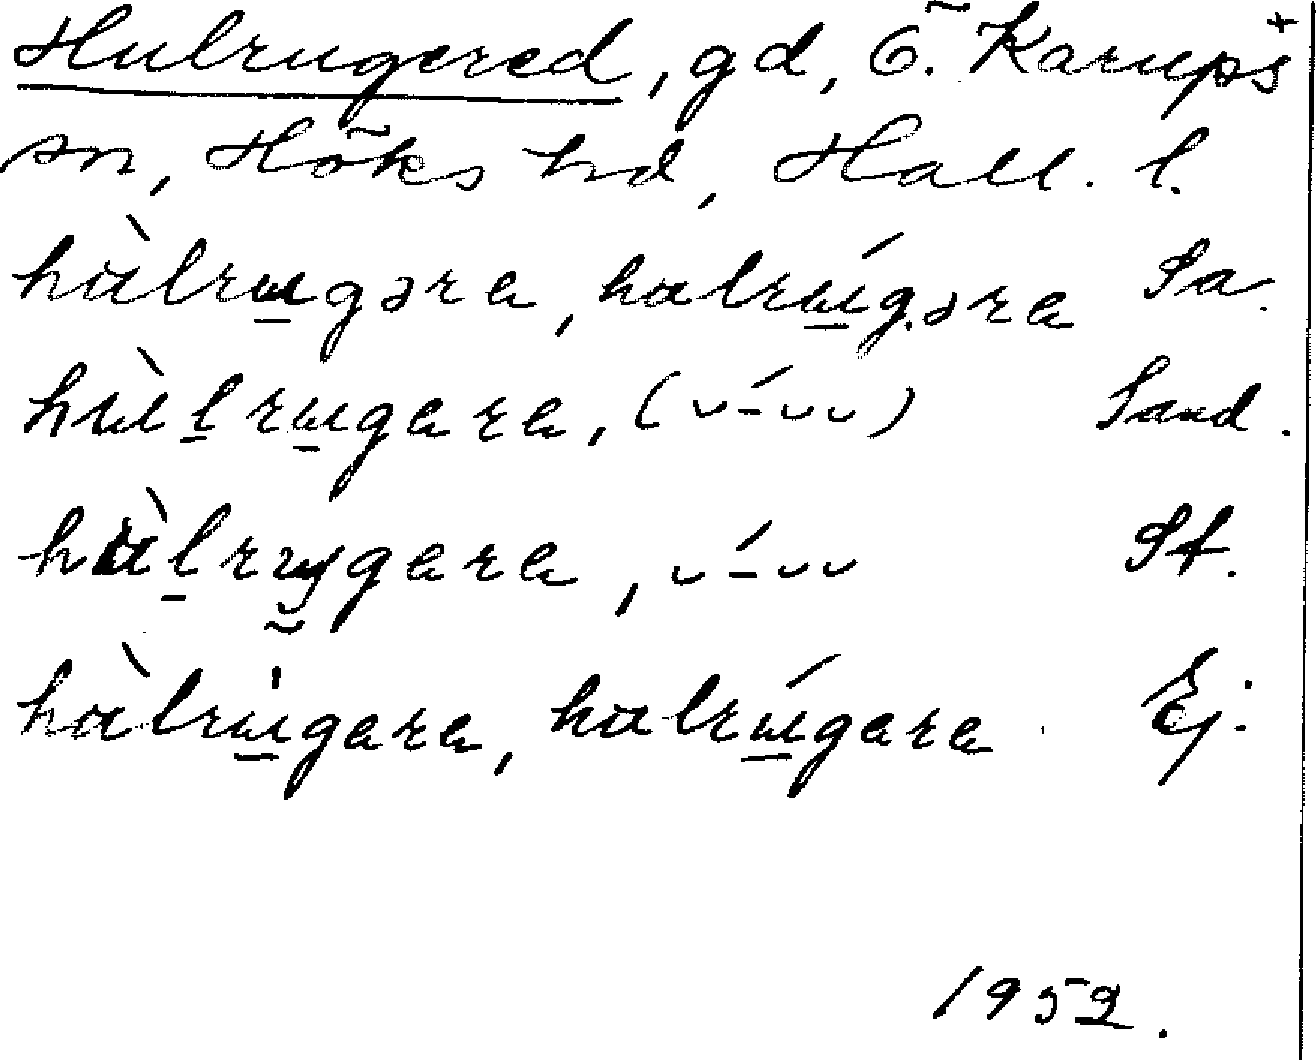 Hulrugered, gd, Ö. Karups
sn, Höks hd, Hall. l.
hàlrugəra, halrúgəra Sa.
hùlrugara, (˘–́˘˘) Sand.
hàlrygara, ˘–́˘˘ St.
hàlrugara, halrúgara Ej.
1952.